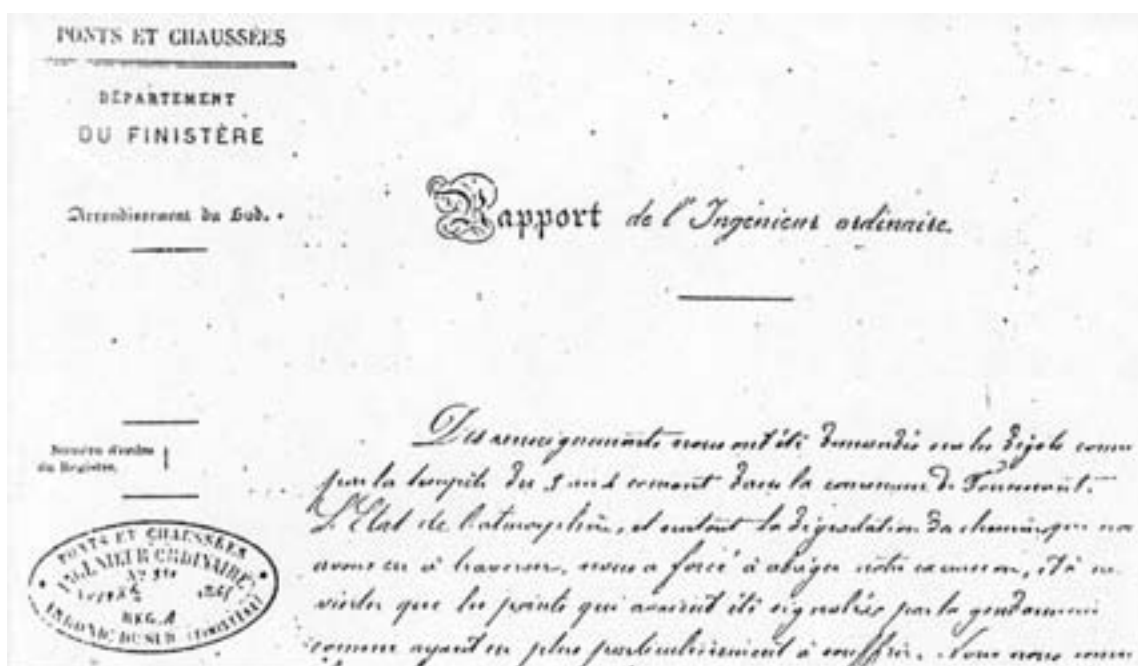 PONTS ET CHAUSSÉES
DÉPARTEMENT
DU FINISTÈRE
Arrondissement du Sud.
Rapport de l'Ingénieur ordinaire.
Numéro d'ordre
du Registre.
PONTS ET CHAUSSÉES
INGÉNIEUR ORDINAIRE
REG. A
DU SUD (FINISTÈRE)
Des renseignements nous ont été demandés sur les dégâts
par la tempête du 3 au 4 courant dans la commune de Fouesnant.
L'Etat de l'atmosphère, et surtout la dégradation du chemin que
avons eu à traverser, nous a forcé à abréger notre excursion, et à ne
visiter que les points qui avaient été signalés par la gendarmerie
comme ayant eu plus particulièrement à souffrir. Nous nous